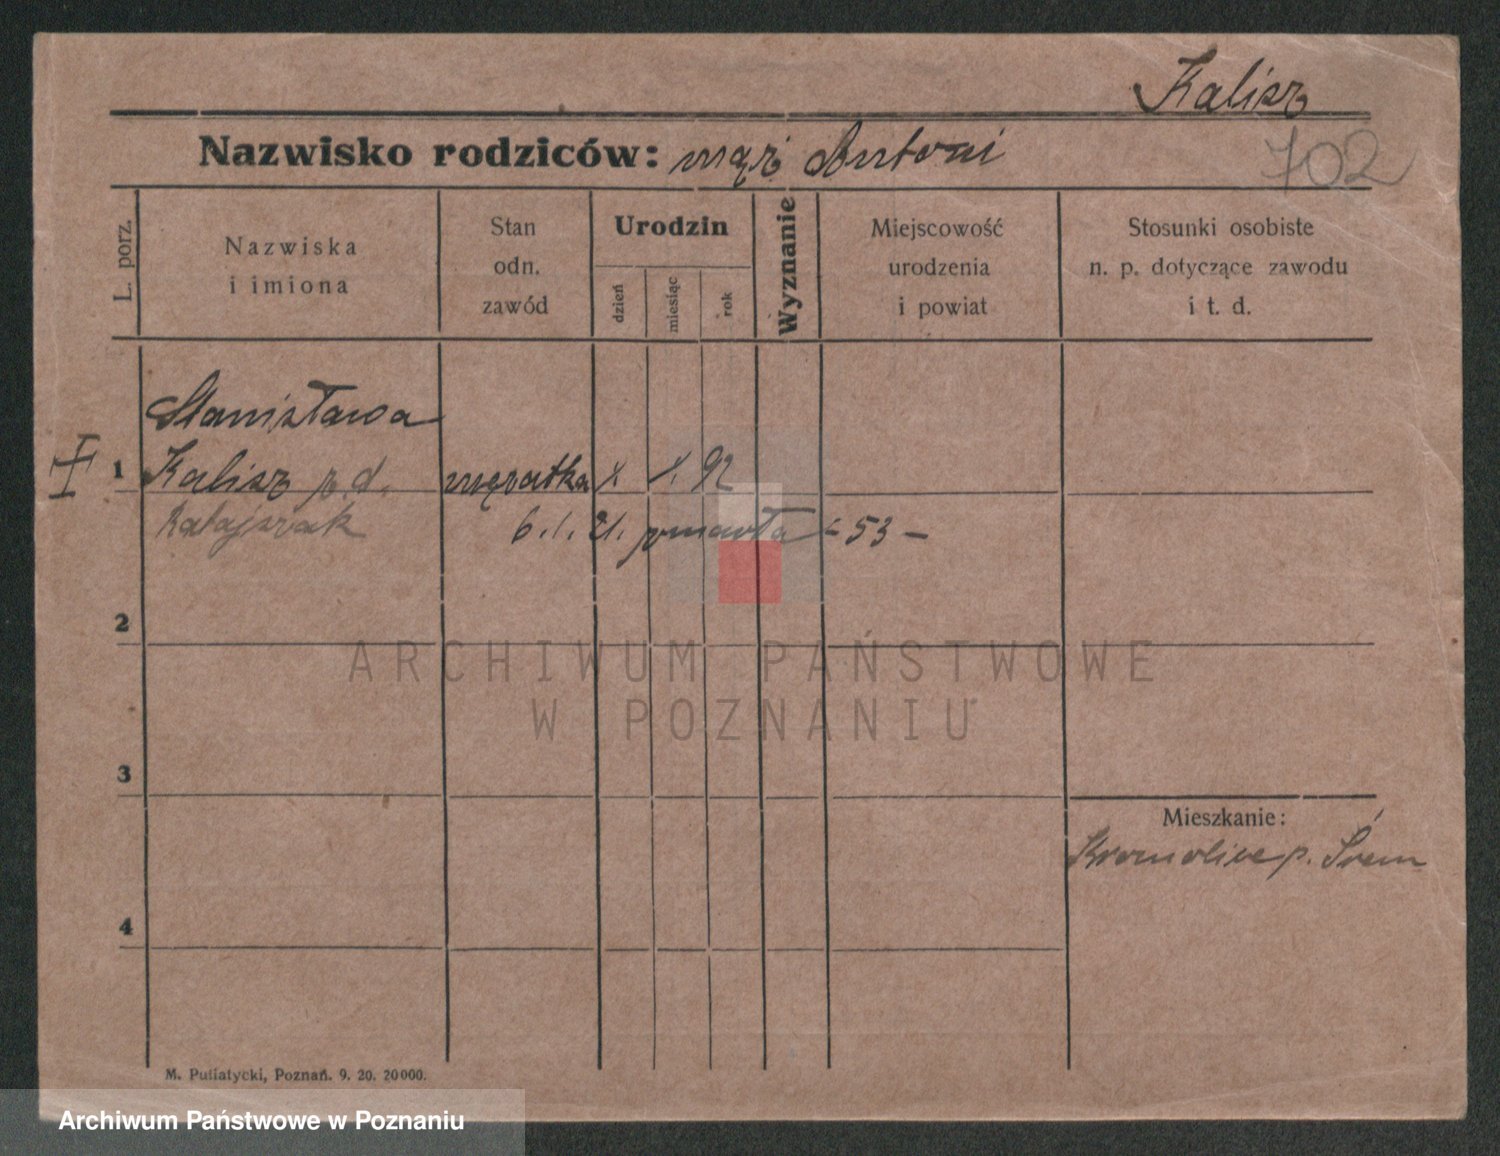 Kalisz
Nazwisko rodziców: mąż Antoni
702
L. porz.
Nazwiska
i imiona
Stan
odn.
zawód
Urodzin
dzień
miesiąc
rok
Wyznanie
Miejscowość
urodzenia
i powiat
Stosunki osobiste
n. p. dotyczące zawodu
i t. d.
Stanisława
1 Kalisz z d. mężatka x x. 92
Ratajczak 6.1.21. zmarła - 53 -
2
ARCHIWUM PAŃSTWOWE
W POZNANIU
3
Mieszkanie:
Kromolice p. Śrem
4
M. Putiatycki, Poznań. 9. 20. 20000.
Archiwum Państwowe w Poznaniu